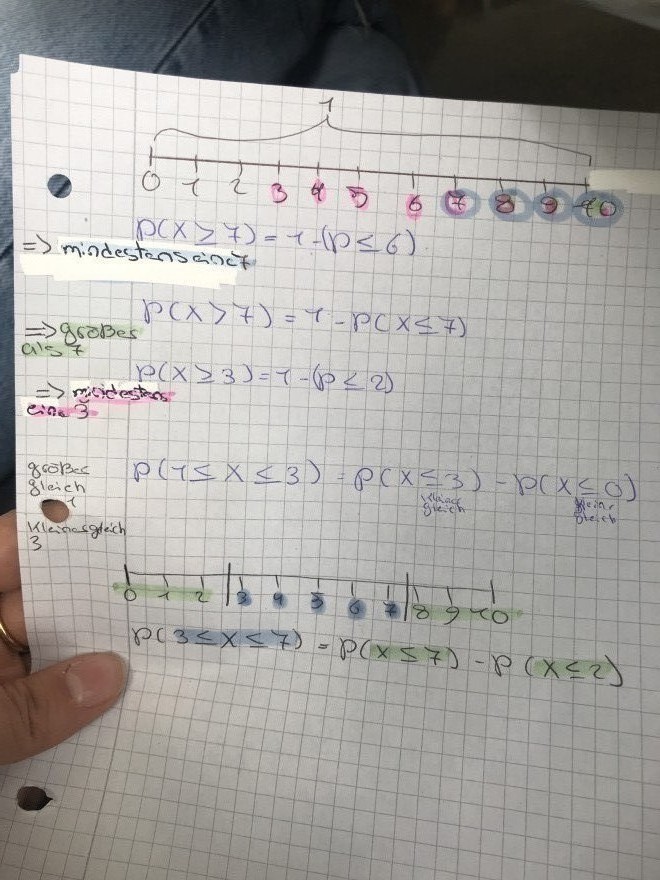 1
0 1 2 3 4 5 6 7 8 9 10
P(X ≥ 7) = 1-(P ≤ 6)
=> mindestens eine 7
P(X > 7) = 1 - P(X ≤ 7)
=> größer
als 7
P(X ≥ 3) = 1-(P ≤ 2)
=> mindestens
eine 3
größer
gleich
1
kleinergleich
3
P(1 ≤ X ≤ 3) = P(X ≤ 3) - P(X ≤ 0)
kleiner
gleich
kleiner
gleich
0 1 2 3 4 5 6 7 8 9 10
P(3 ≤ X ≤ 7) = P(X ≤ 7) - P(X ≤ 2)